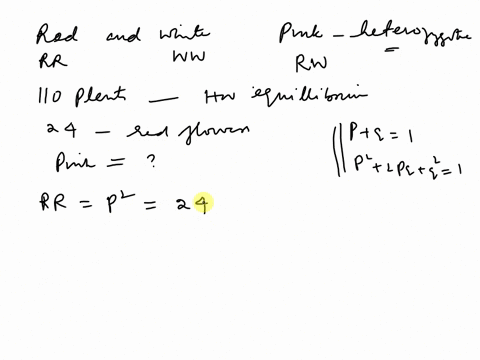 Red and white Pink - heterozygote
RR WW RW
110 Plents — HW equillibrium
24 - red flower
Pink = ?
P+q = 1
P²+2Pq+q²=1
RR = P² = 24